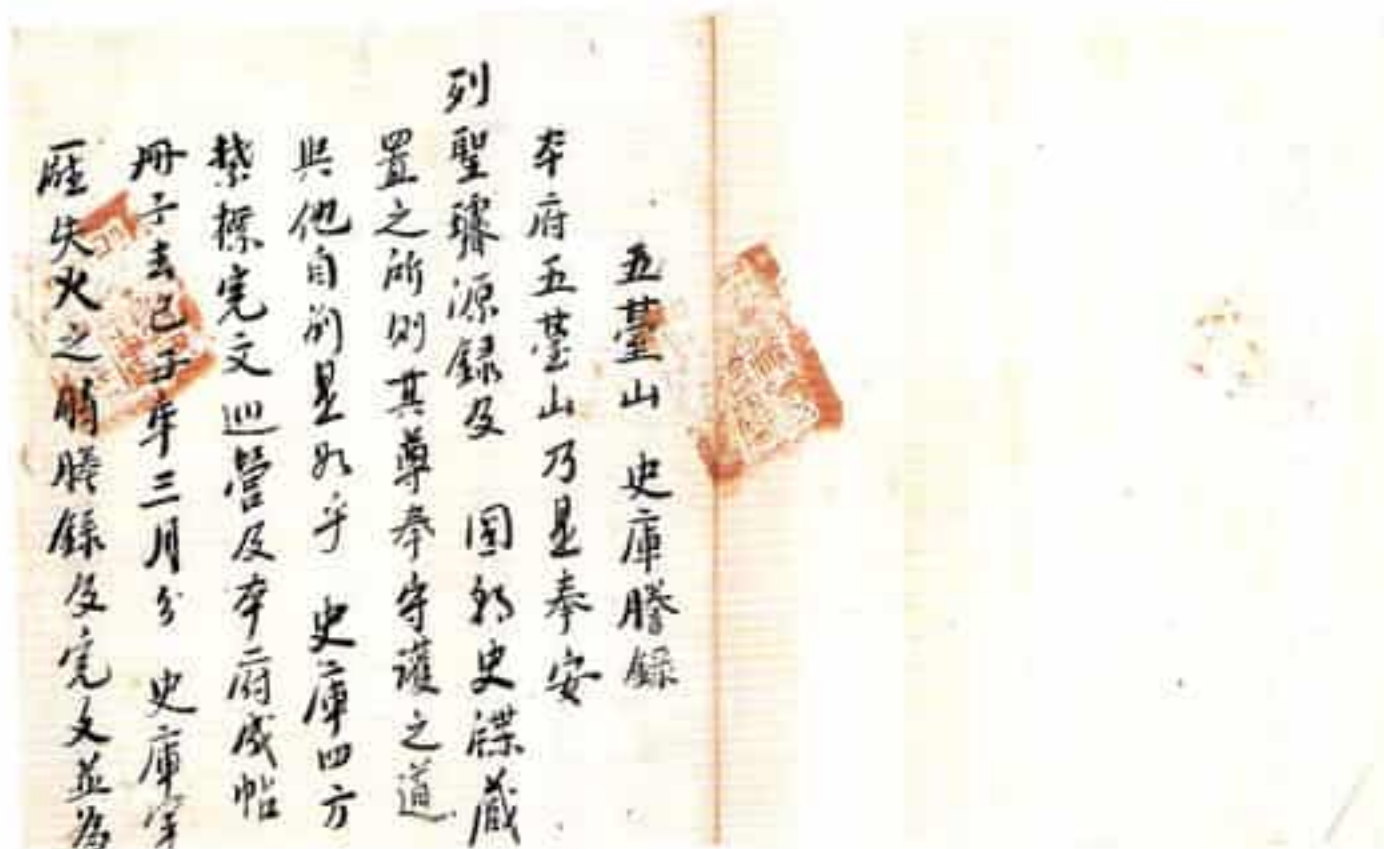 五臺山 史庫謄錄
本府五臺山乃是奉安
列聖璿源錄及 國朝史牒藏
置之所則其尊奉守護之道
與他自別是如乎 史庫四方
禁標完文巡營及本府成帖
冊子去己子年三月分 史庫
失火之時謄錄及完文並為